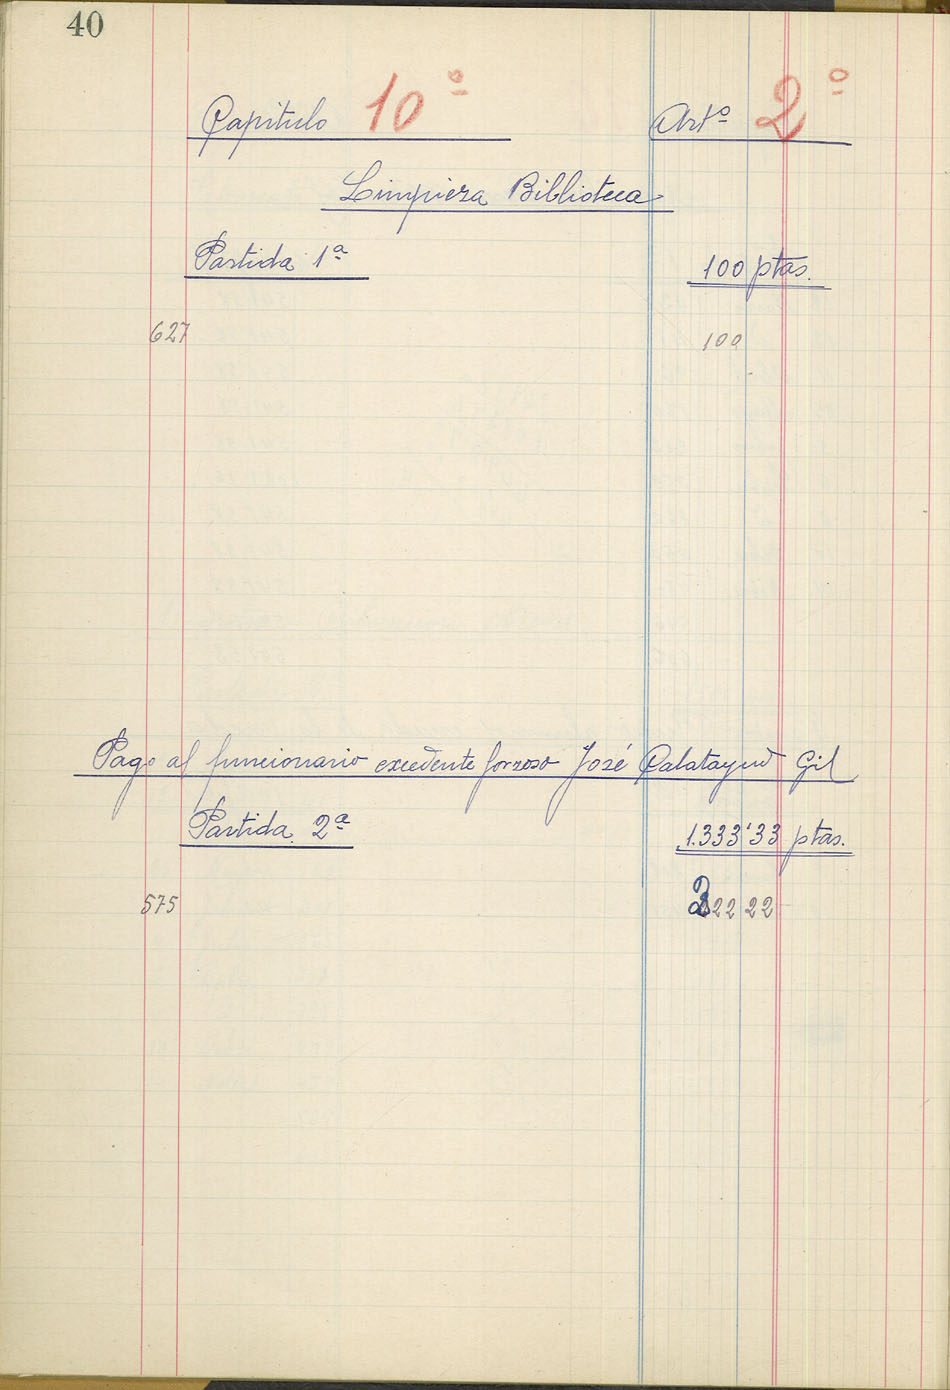 40
Capitulo 10º Artº 2º
Limpieza Biblioteca
Partida 1ª 100 ptas.
627 100
Pago al funcionario excedente forzoso José Calatayud Gil
Partida 2ª 1.333'33 ptas.
575 222 22